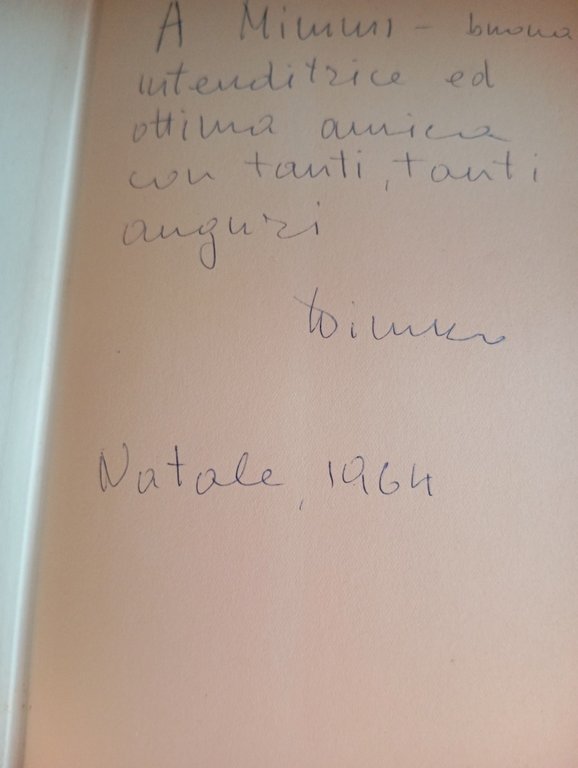 A Mimmi - buona
intenditrice ed
ottima amica
con tanti, tanti
auguri
Natale, 1964